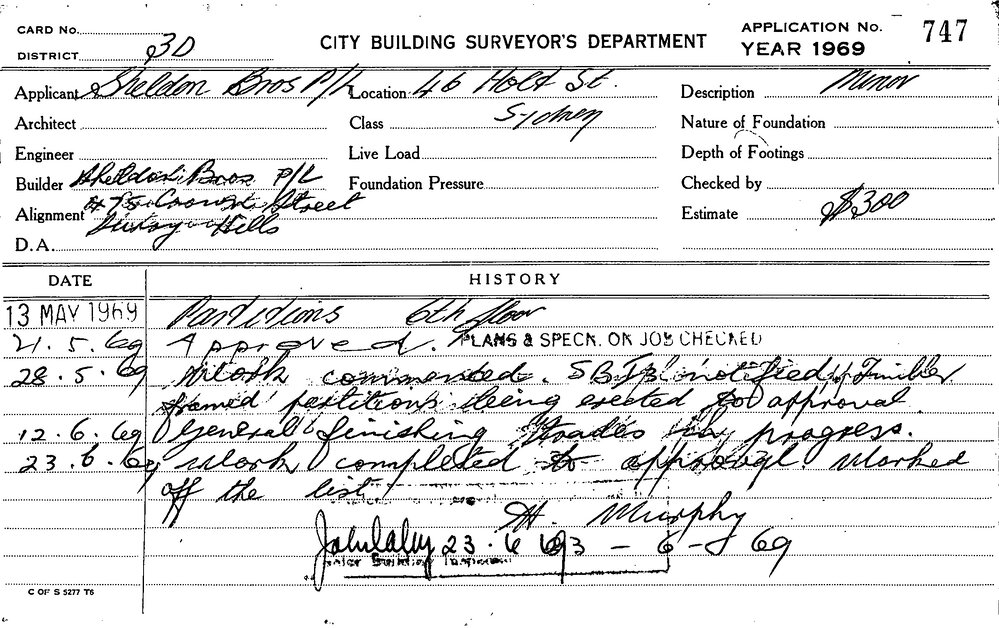 CARD No.
DISTRICT 3D
CITY BUILDING SURVEYOR'S DEPARTMENT
APPLICATION No. 747
YEAR 1969
Applicant Sheldon Bros P/L Location 46 Holt St. Description Minor
Architect Class Sydney Nature of Foundation
Engineer Live Load Depth of Footings
Builder Sheldon Bros P/L Foundation Pressure Checked by
Alignment Street Estimate $300
Hills
D.A.
DATE HISTORY
13 MAY 1969 Partitions 6th floor
21.5.69 Approved. PLANS & SPECN. ON JOB CHECKED
28.5.69 Work commenced. notified. Timber
framed partitions being erected to approval.
12.6.69 General finishing trades in progress.
23.6.69 Work completed to approval. Marked
off the list.
H. Murphy
23.6.69 3-6-69
Building Inspector
C OF S 5277 T6